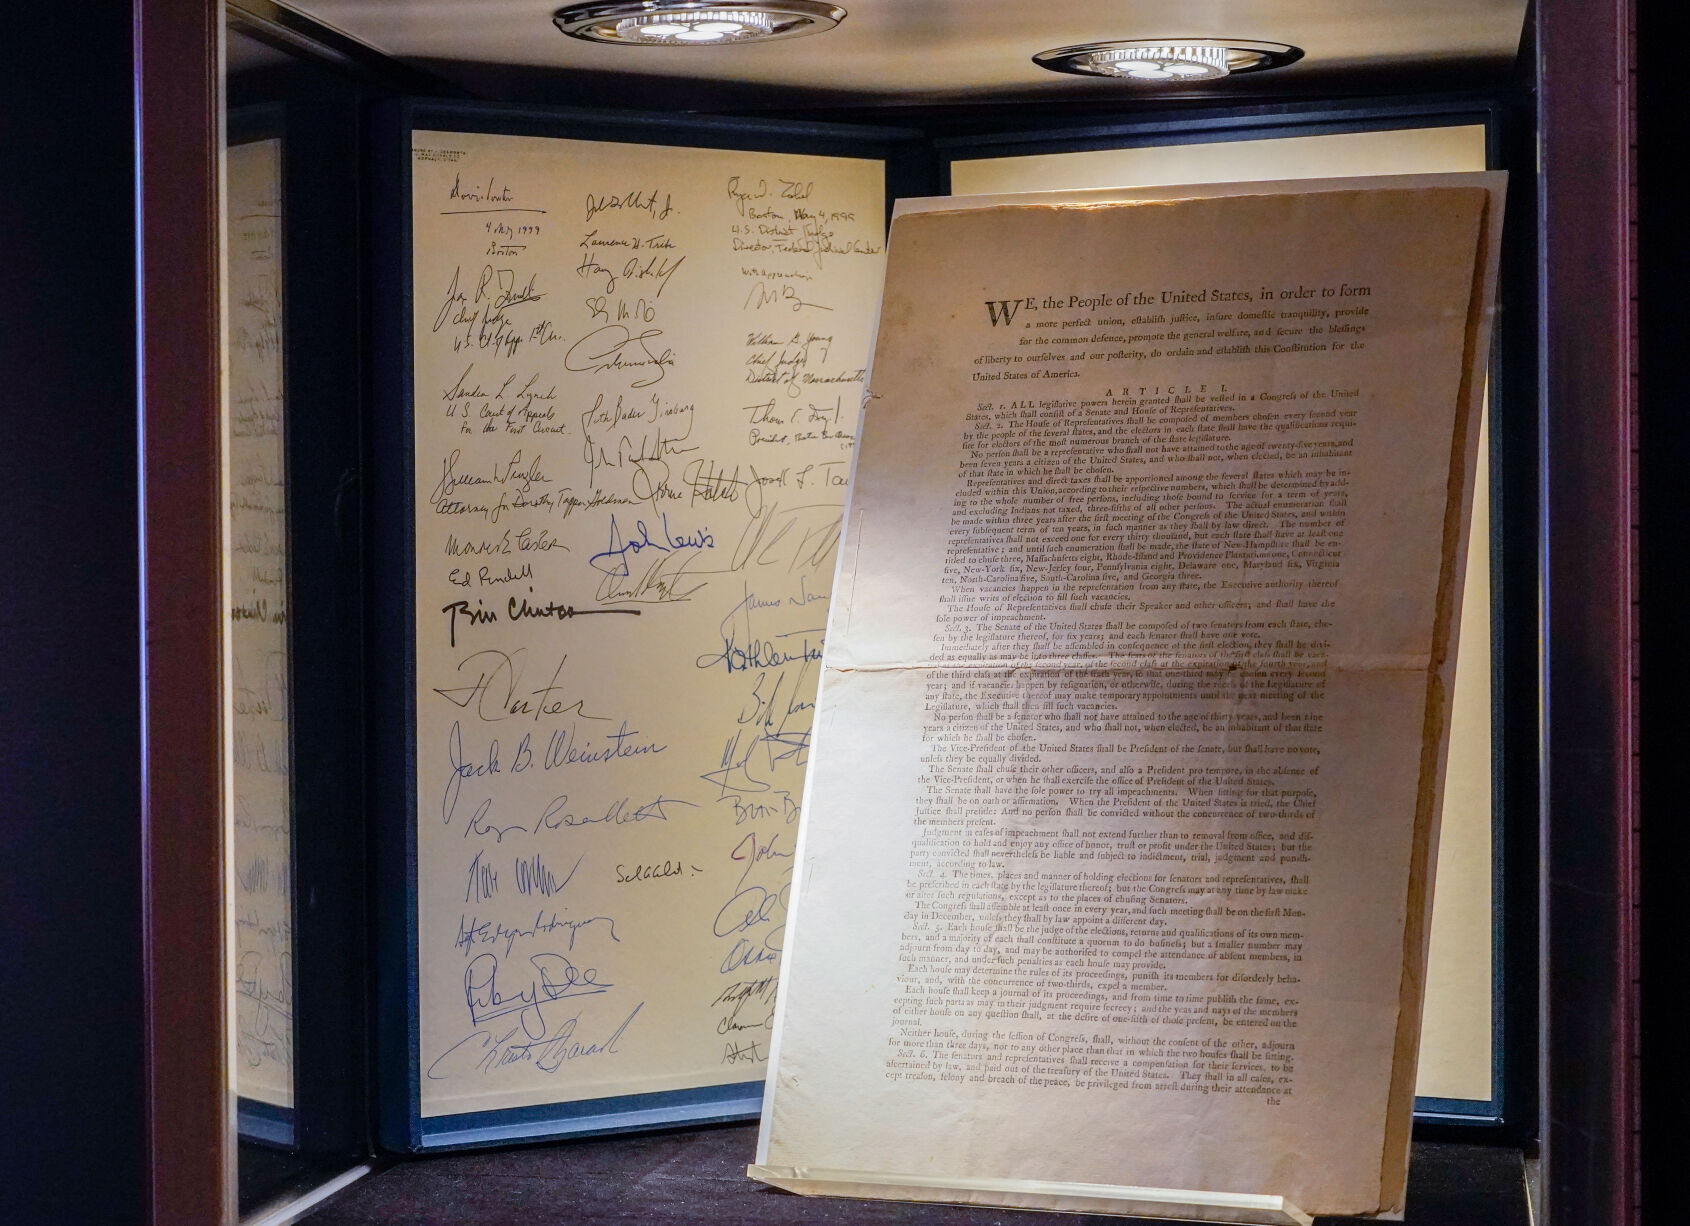 4 May 1999
Boston
Chief Judge
Sandra L. Lynch
U.S. Court of Appeals
for the First Circuit.
Attorney for Dorothy Tapper Goldman
Ed Rendell
Bill Clinton
J Carter
Jack B. Weinstein
Laurence H. Tribe
Ruth Bader Ginsburg
John Lewis
Boston, May 4, 1999
U.S. District Judge
Director, Federal Judicial Center
With appreciation
William G. Young
Chief Judge
District of Massachusetts
WE, the People of the United States, in order to form
a more perfect union, establish justice, insure domestic tranquility, provide
for the common defence, promote the general welfare, and secure the blessings
of liberty to ourselves and our posterity, do ordain and establish this Constitution for the
United States of America.
ARTICLE I.
Sect. 1. ALL legislative powers herein granted shall be vested in a Congress of the United
States, which shall consist of a Senate and House of Representatives.
Sect. 2. The House of Representatives shall be composed of members chosen every second year
by the people of the several states, and the electors in each state shall have the qualifications requi-
site for electors of the most numerous branch of the state legislature.
No person shall be a representative who shall not have attained to the age of twenty-five years, and
been seven years a citizen of the United States, and who shall not, when elected, be an inhabitant
of that state in which he shall be chosen.
Representatives and direct taxes shall be apportioned among the several states which may be in-
cluded within this Union, according to their respective numbers, which shall be determined by add-
ing to the whole number of free persons, including those bound to service for a term of years,
and excluding Indians not taxed, three-fifths of all other persons. The actual enumeration shall
be made within three years after the first meeting of the Congress of the United States, and within
every subsequent term of ten years, in such manner as they shall by law direct. The number of
representatives shall not exceed one for every thirty thousand, but each state shall have at least one
representative; and until such enumeration shall be made, the state of New-Hampshire shall be en-
titled to chuse three, Massachusetts eight, Rhode-Island and Providence Plantations one, Connecticut
five, New-York six, New-Jersey four, Pennsylvania eight, Delaware one, Maryland six, Virginia
ten, North-Carolina five, South-Carolina five, and Georgia three.
When vacancies happen in the representation from any state, the Executive authority thereof
shall issue writs of election to fill such vacancies.
The House of Representatives shall chuse their Speaker and other officers; and shall have the
sole power of impeachment.
Sect. 3. The Senate of the United States shall be composed of two senators from each state, cho-
sen by the legislature thereof, for six years; and each senator shall have one vote.
Immediately after they shall be assembled in consequence of the first election, they shall be divi-
ded as equally as may be into three classes. The seats of the senators of the first class shall be vaca-
ted at the expiration of the second year, of the second class at the expiration of the fourth year, and
of the third class at the expiration of the sixth year, so that one-third may be chosen every second
year; and if vacancies happen by resignation, or otherwise, during the recess of the Legislature of
any state, the Executive thereof may make temporary appointments until the next meeting of the
Legislature, which shall then fill such vacancies.
No person shall be a senator who shall not have attained to the age of thirty years, and been nine
years a citizen of the United States, and who shall not, when elected, be an inhabitant of that state
for which he shall be chosen.
The Vice-President of the United States shall be President of the senate, but shall have no vote,
unless they be equally divided.
The Senate shall chuse their other officers, and also a President pro tempore, in the absence of
the Vice-President, or when he shall exercise the office of President of the United States.
The Senate shall have the sole power to try all impeachments. When sitting for that purpose,
they shall be on oath or affirmation. When the President of the United States is tried, the Chief
Justice shall preside: And no person shall be convicted without the concurrence of two-thirds of
the members present.
Judgment in cases of impeachment shall not extend further than to removal from office, and dis-
qualification to hold and enjoy any office of honor, trust or profit under the United States; but the
party convicted shall nevertheless be liable and subject to indictment, trial, judgment and punish-
ment, according to law.
Sect. 4. The times, places and manner of holding elections for senators and representatives, shall
be prescribed in each state by the legislature thereof; but the Congress may at any time by law make
or alter such regulations, except as to the places of chusing Senators.
The Congress shall assemble at least once in every year, and such meeting shall be on the first Mon-
day in December, unless they shall by law appoint a different day.
Sect. 5. Each house shall be the judge of the elections, returns and qualifications of its own mem-
bers, and a majority of each shall constitute a quorum to do business; but a smaller number may
adjourn from day to day, and may be authorised to compel the attendance of absent members, in
such manner, and under such penalties as each house may provide.
Each house may determine the rules of its proceedings, punish its members for disorderly beha-
viour, and, with the concurrence of two-thirds, expel a member.
Each house shall keep a journal of its proceedings, and from time to time publish the same, ex-
cepting such parts as may in their judgment require secrecy; and the yeas and nays of the members
of either house on any question shall, at the desire of one-fifth of those present, be entered on the
journal.
Neither house, during the session of Congress, shall, without the consent of the other, adjourn
for more than three days, nor to any other place than that in which the two houses shall be sitting.
Sect. 6. The senators and representatives shall receive a compensation for their services, to be
ascertained by law, and paid out of the treasury of the United States. They shall in all cases, ex-
cept treason, felony and breach of the peace, be privileged from arrest during their attendance at
the